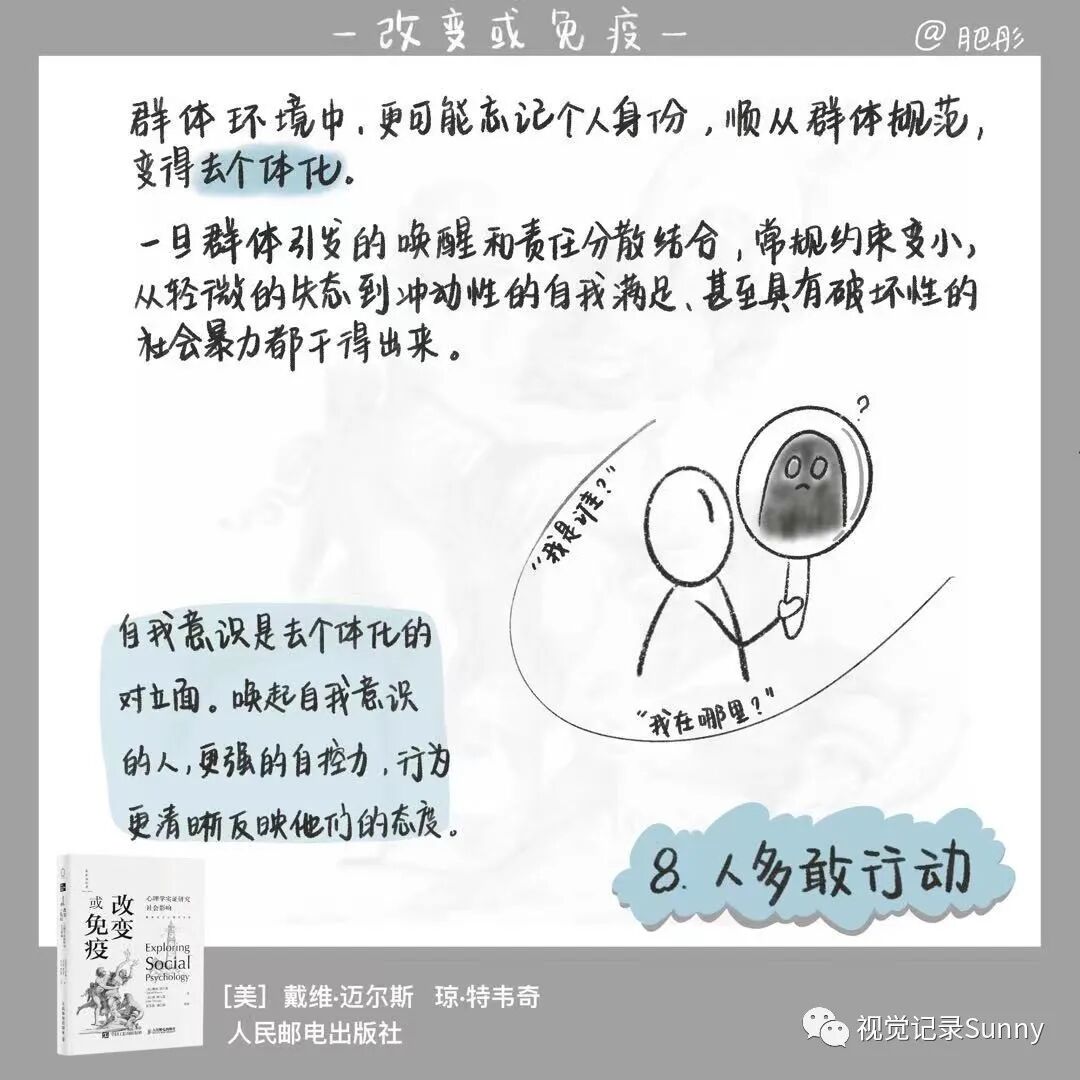 －改变或免疫－
@肥彤
群体环境中，更可能忘记个人身份，顺从群体规范，
变得去个体化。
一旦群体引发的唤醒和责任分散结合，常规约束变小，
从轻微的失态到冲动性的自我满足、甚至具有破坏性的
社会暴力都干得出来。
?
“我是谁？”
“我在哪里？”
自我意识是去个体化的
对立面。唤起自我意识
的人，更强的自控力，行为
更清晰反映他们的态度。
8. 人多敢行动
改变
或
免疫
心理学实证研究
社会影响
Exploring
Social
Psychology
[美] 戴维·迈尔斯 琼·特韦奇
人民邮电出版社
视觉记录Sunny